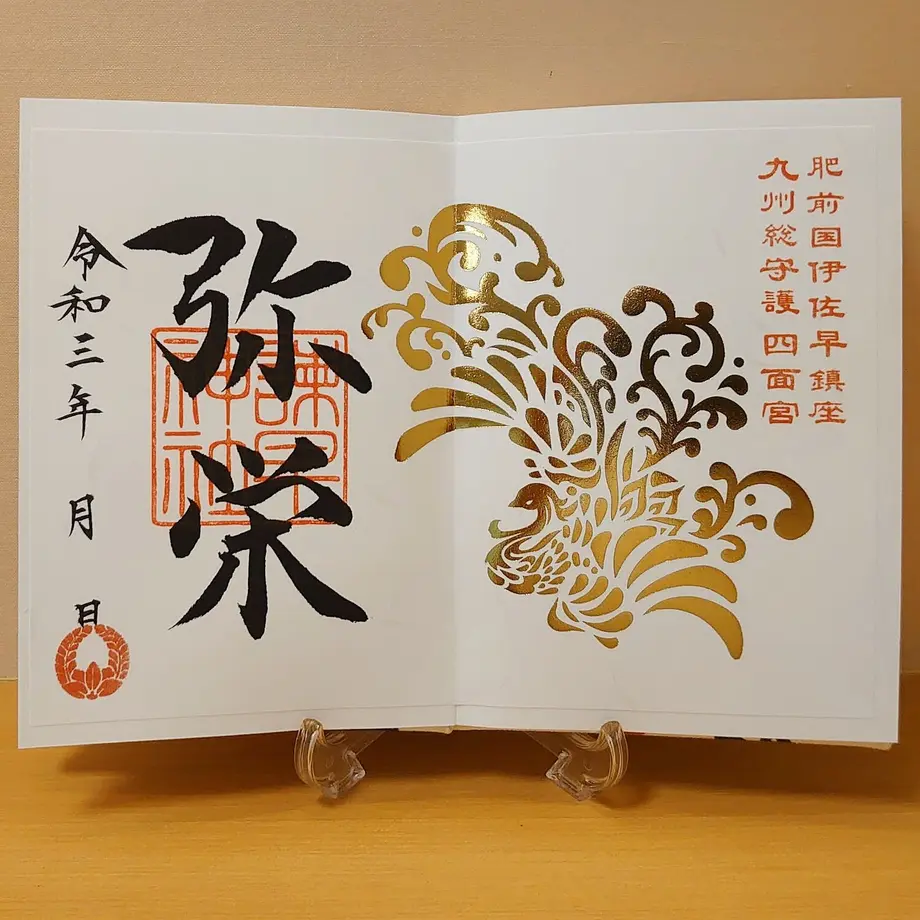 肥前国伊佐早鎮座
九州総守護 四面宮
弥栄
諫早
神社
令和三年 月 日